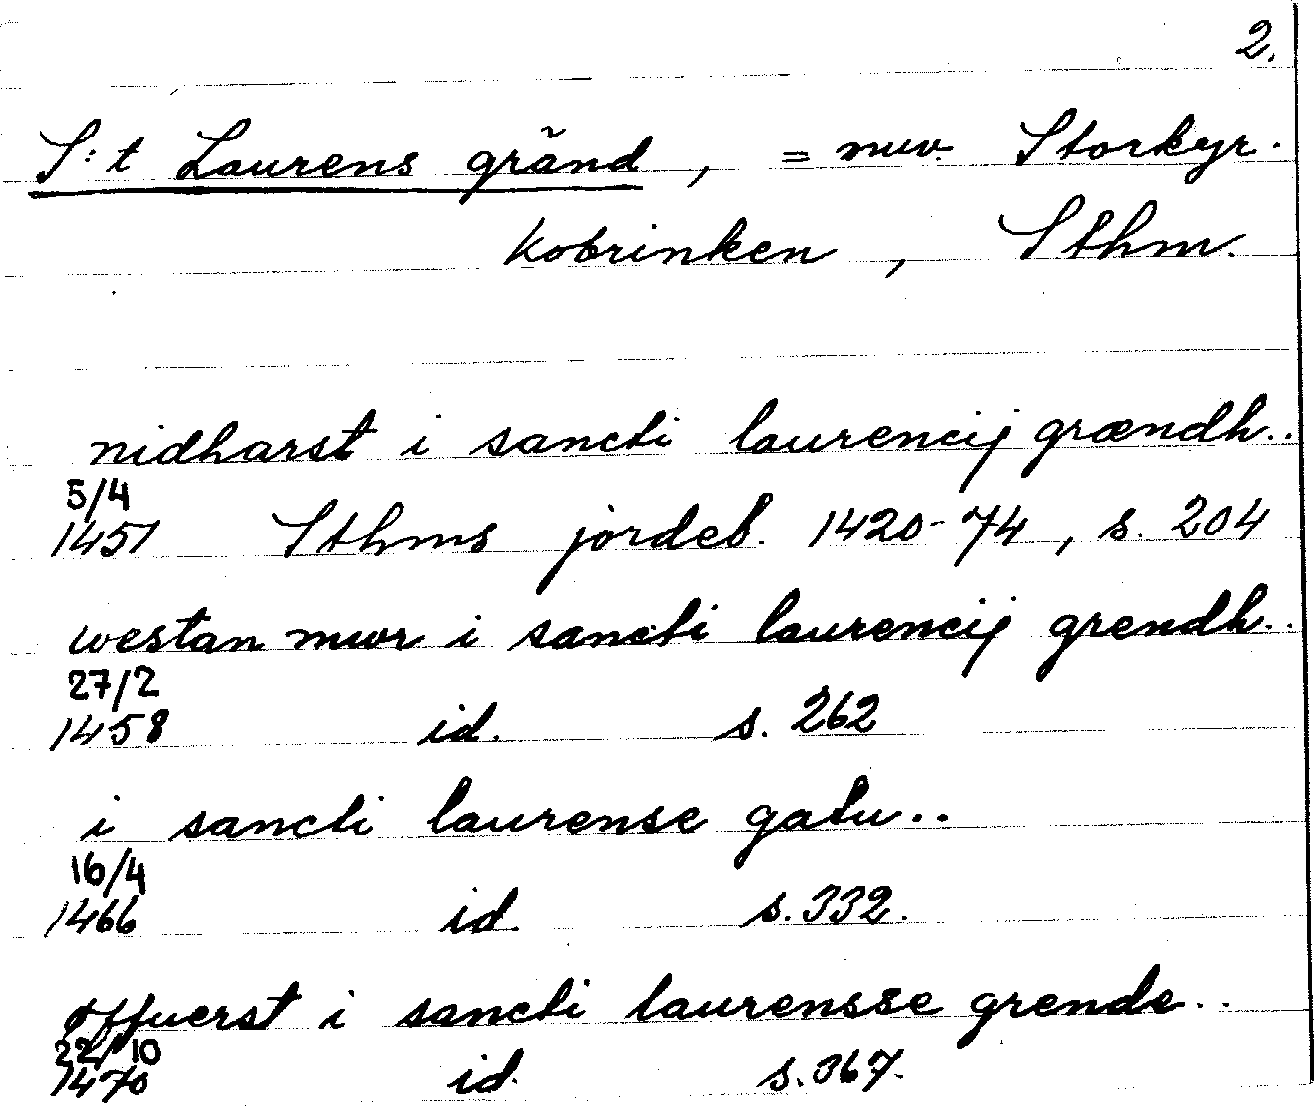 2.
S:t Laurens gränd, = nuv. Storkyr-
kobrinken, Sthm.
nidharst i sancti laurencij grændh..
5/4
1451 Sthms jordeb. 1420-74, s. 204
westan mwr i sancti laurencij grendh..
27/2
1458 id. s. 262
i sancti laurense gatu..
16/4
1466 id. s. 332.
øffuerst i sancti laurensse grende..
22/10
1470 id. s. 367.